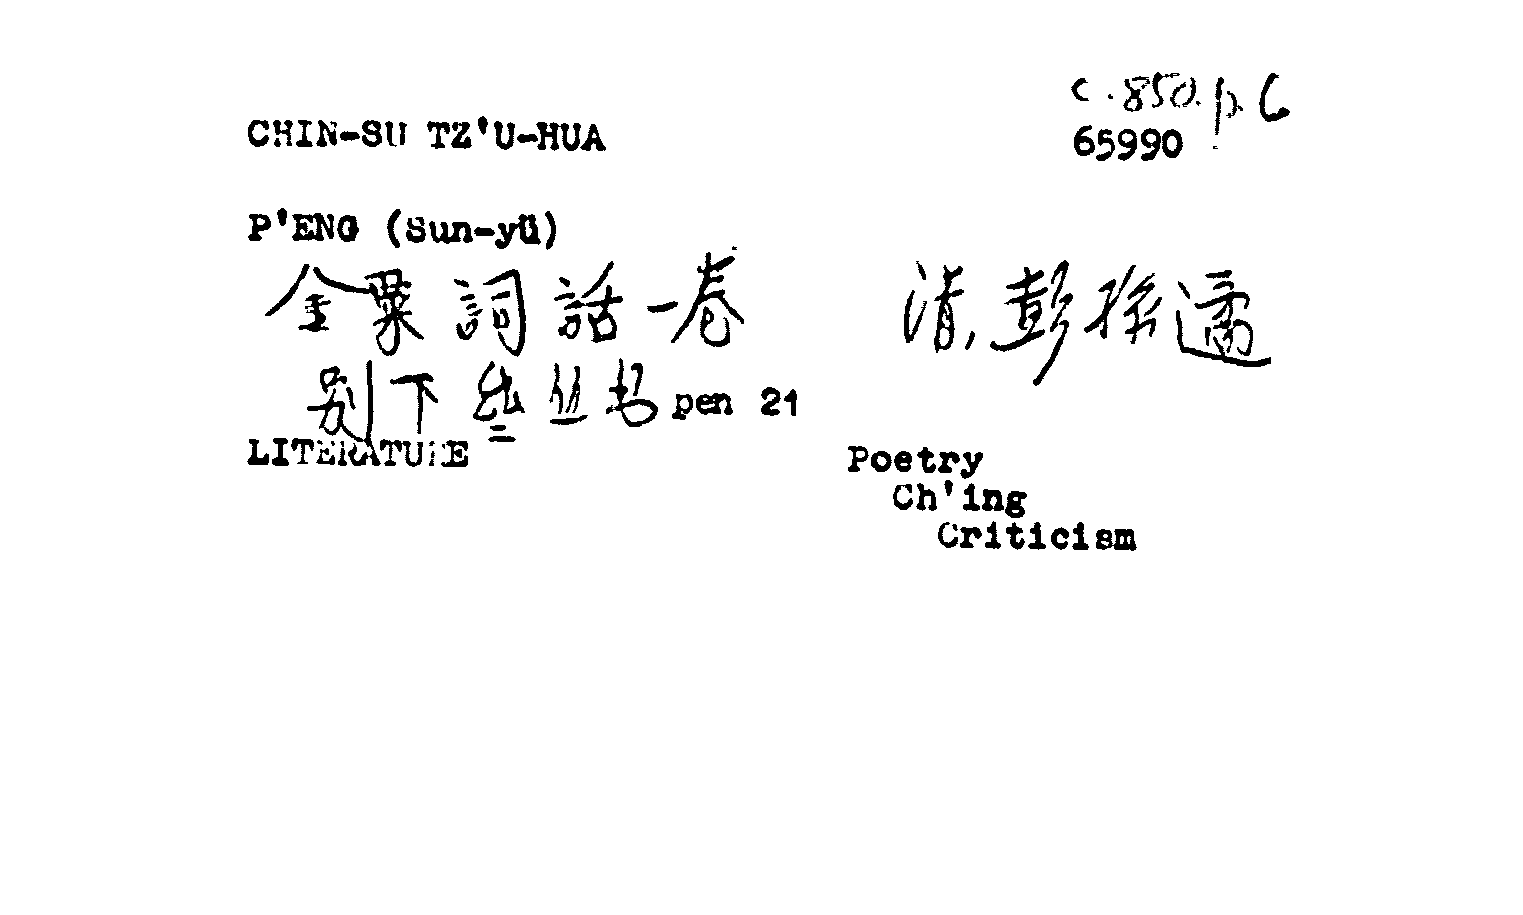 c.850.p.6
CHIN-SU TZ'U-HUA 65990
P'ENG (Sun-yü)
金粟詞話一卷 清,彭孫遹
别下丛书 pen 21
LITERATURE Poetry
Ch'ing
Criticism